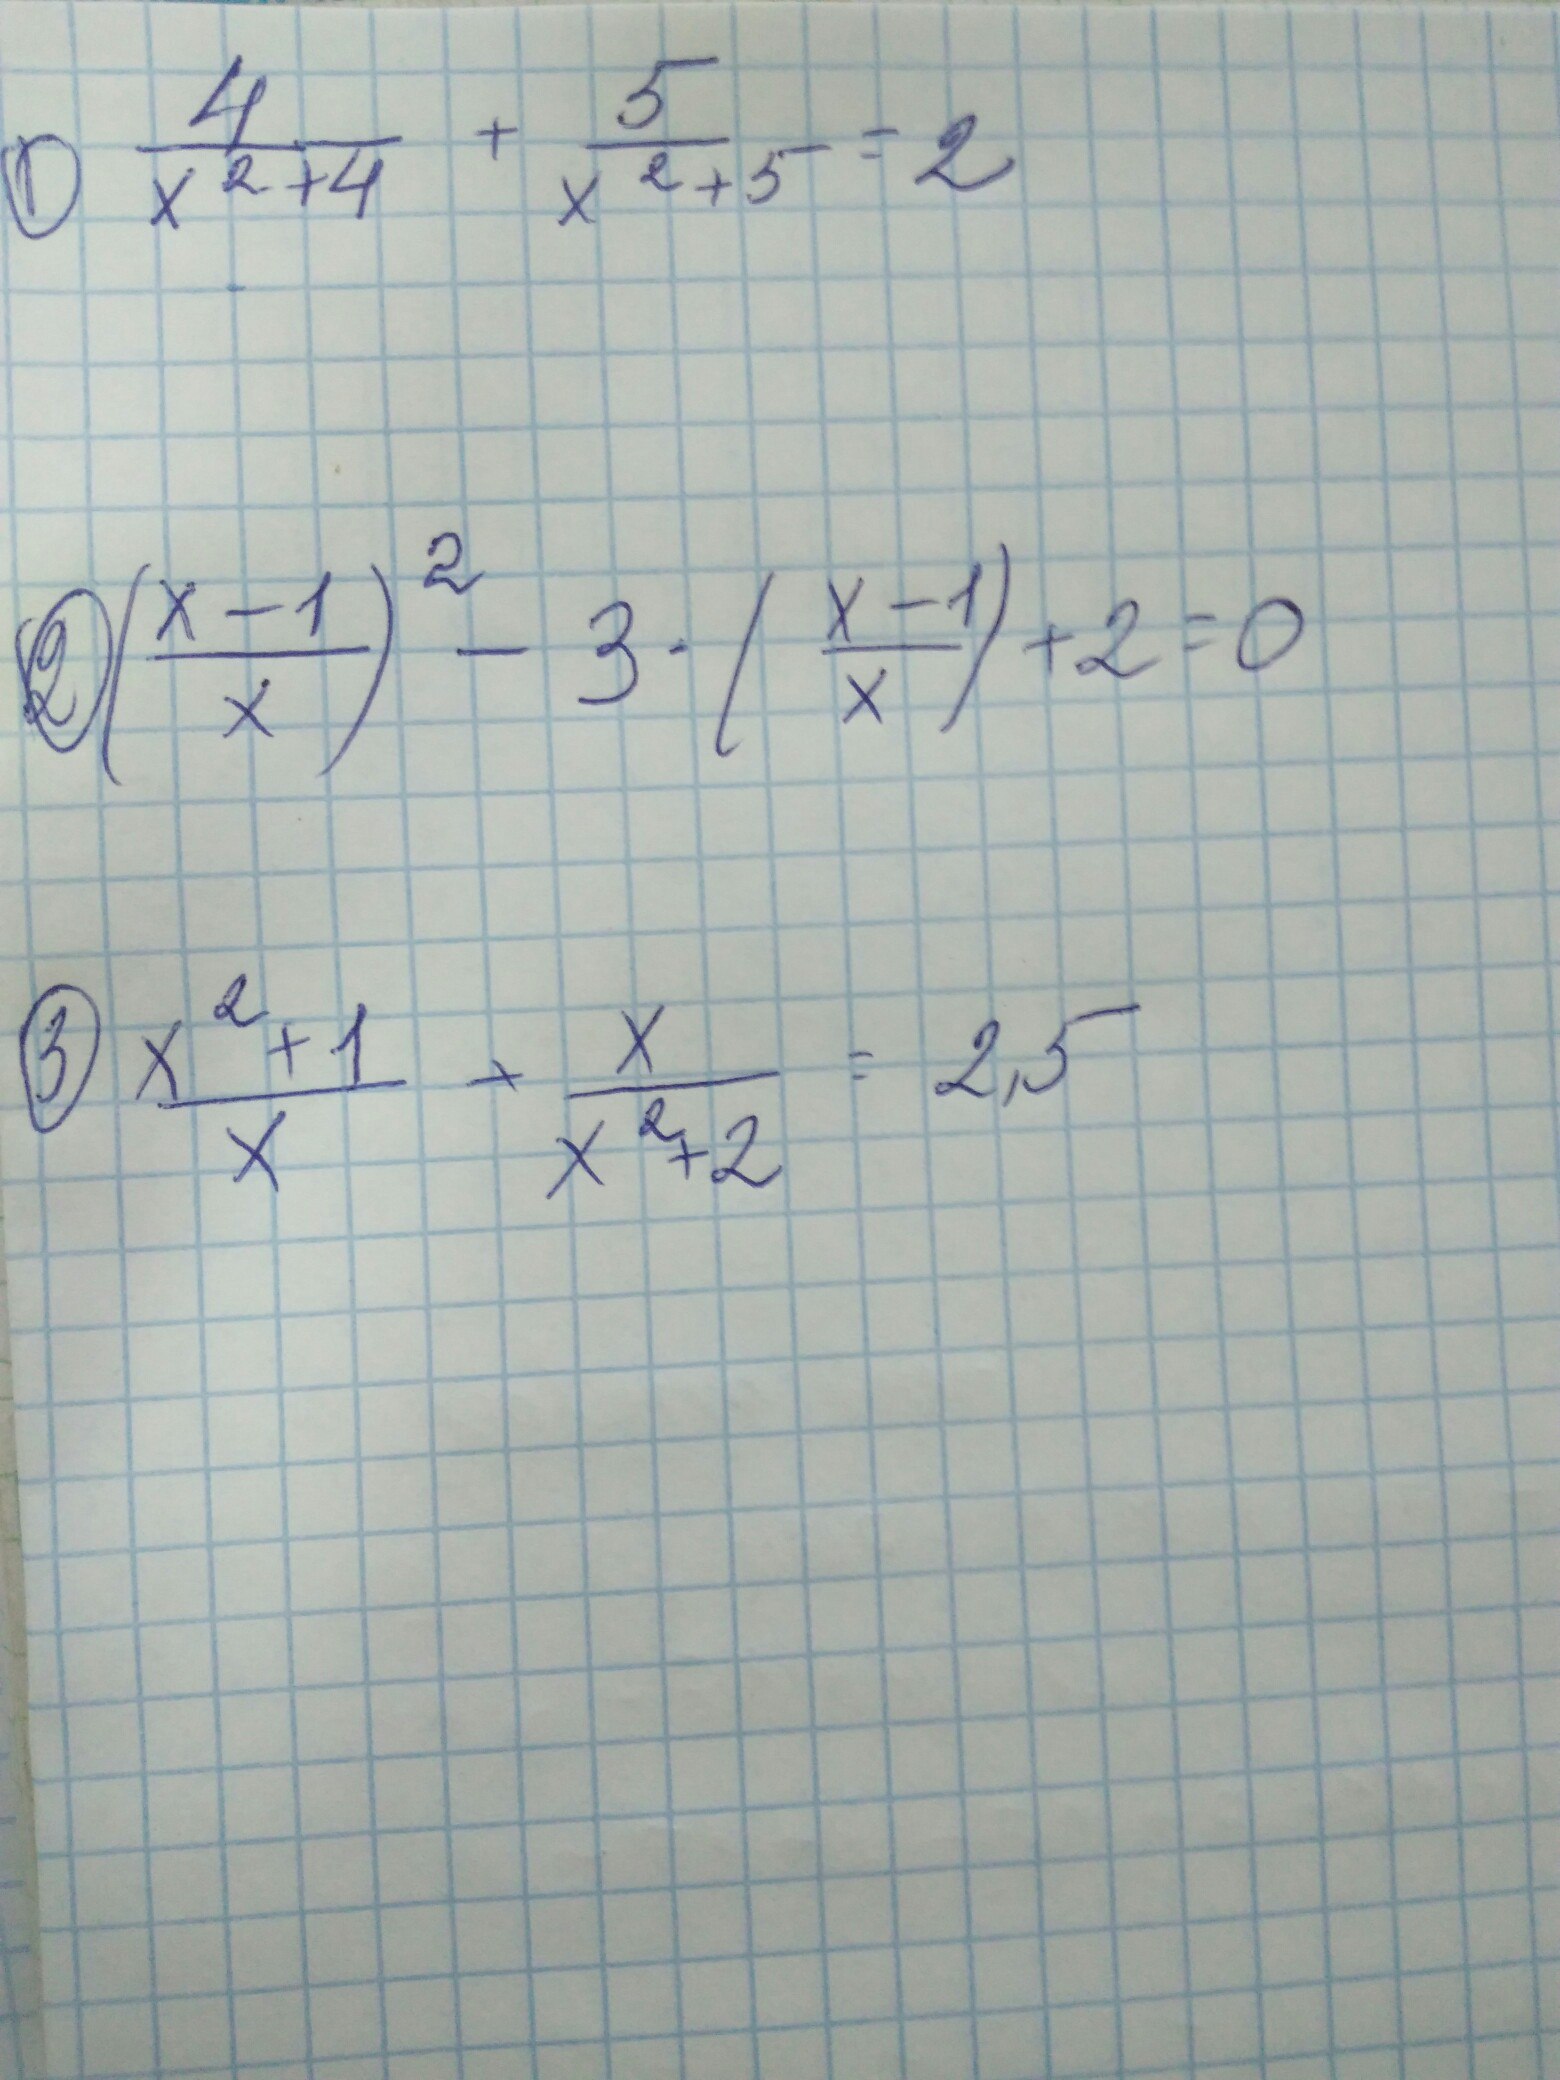 ① 4/(x²+4) + 5/(x²+5) = 2
② ((x-1)/x)² - 3·((x-1)/x) + 2 = 0
③ (x²+1)/x + x/(x²+2) = 2,5